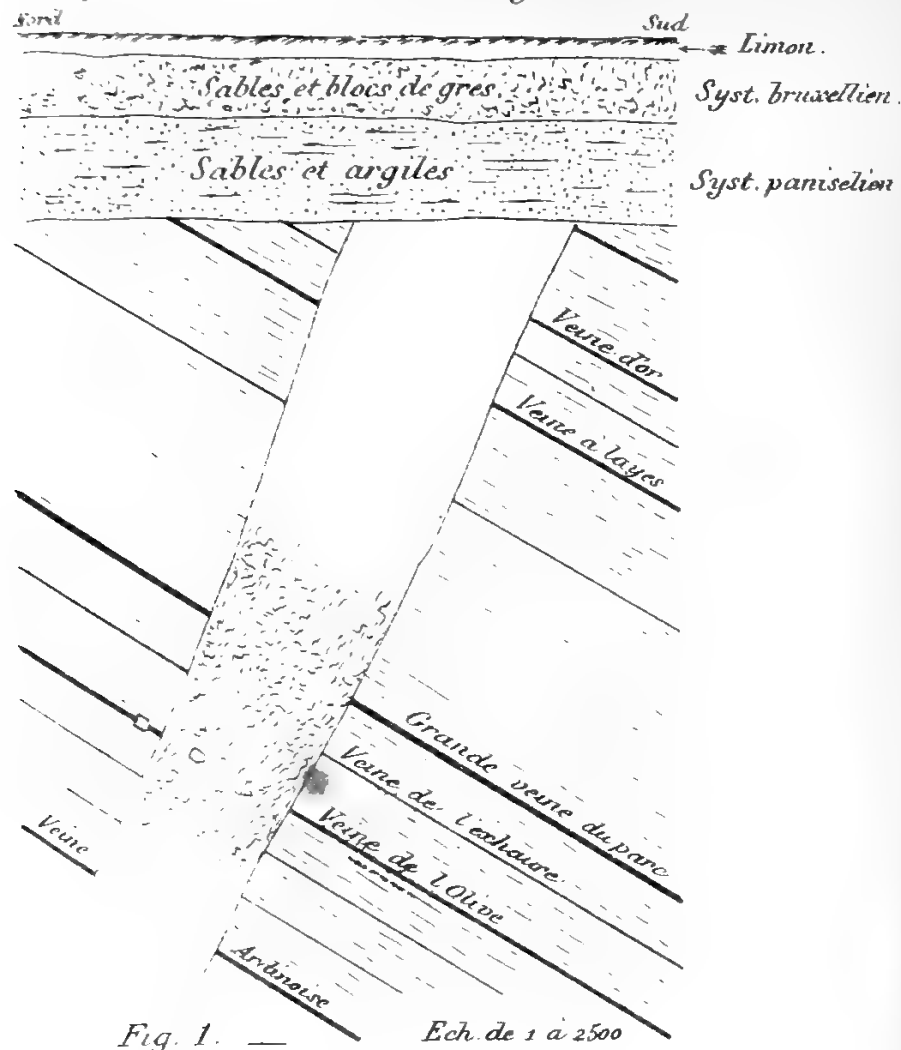 Nord
Sud
Limon.
Sables et blocs de gres.
Syst. bruxellien.
Sables et argiles
Syst. paniselien
Veine d'or
Veine à layes
Grande veine du parc
Veine de l'exhaure
Veine de l'Olive
Veine
Fig. 1. —
Ech. de 1 à 2500